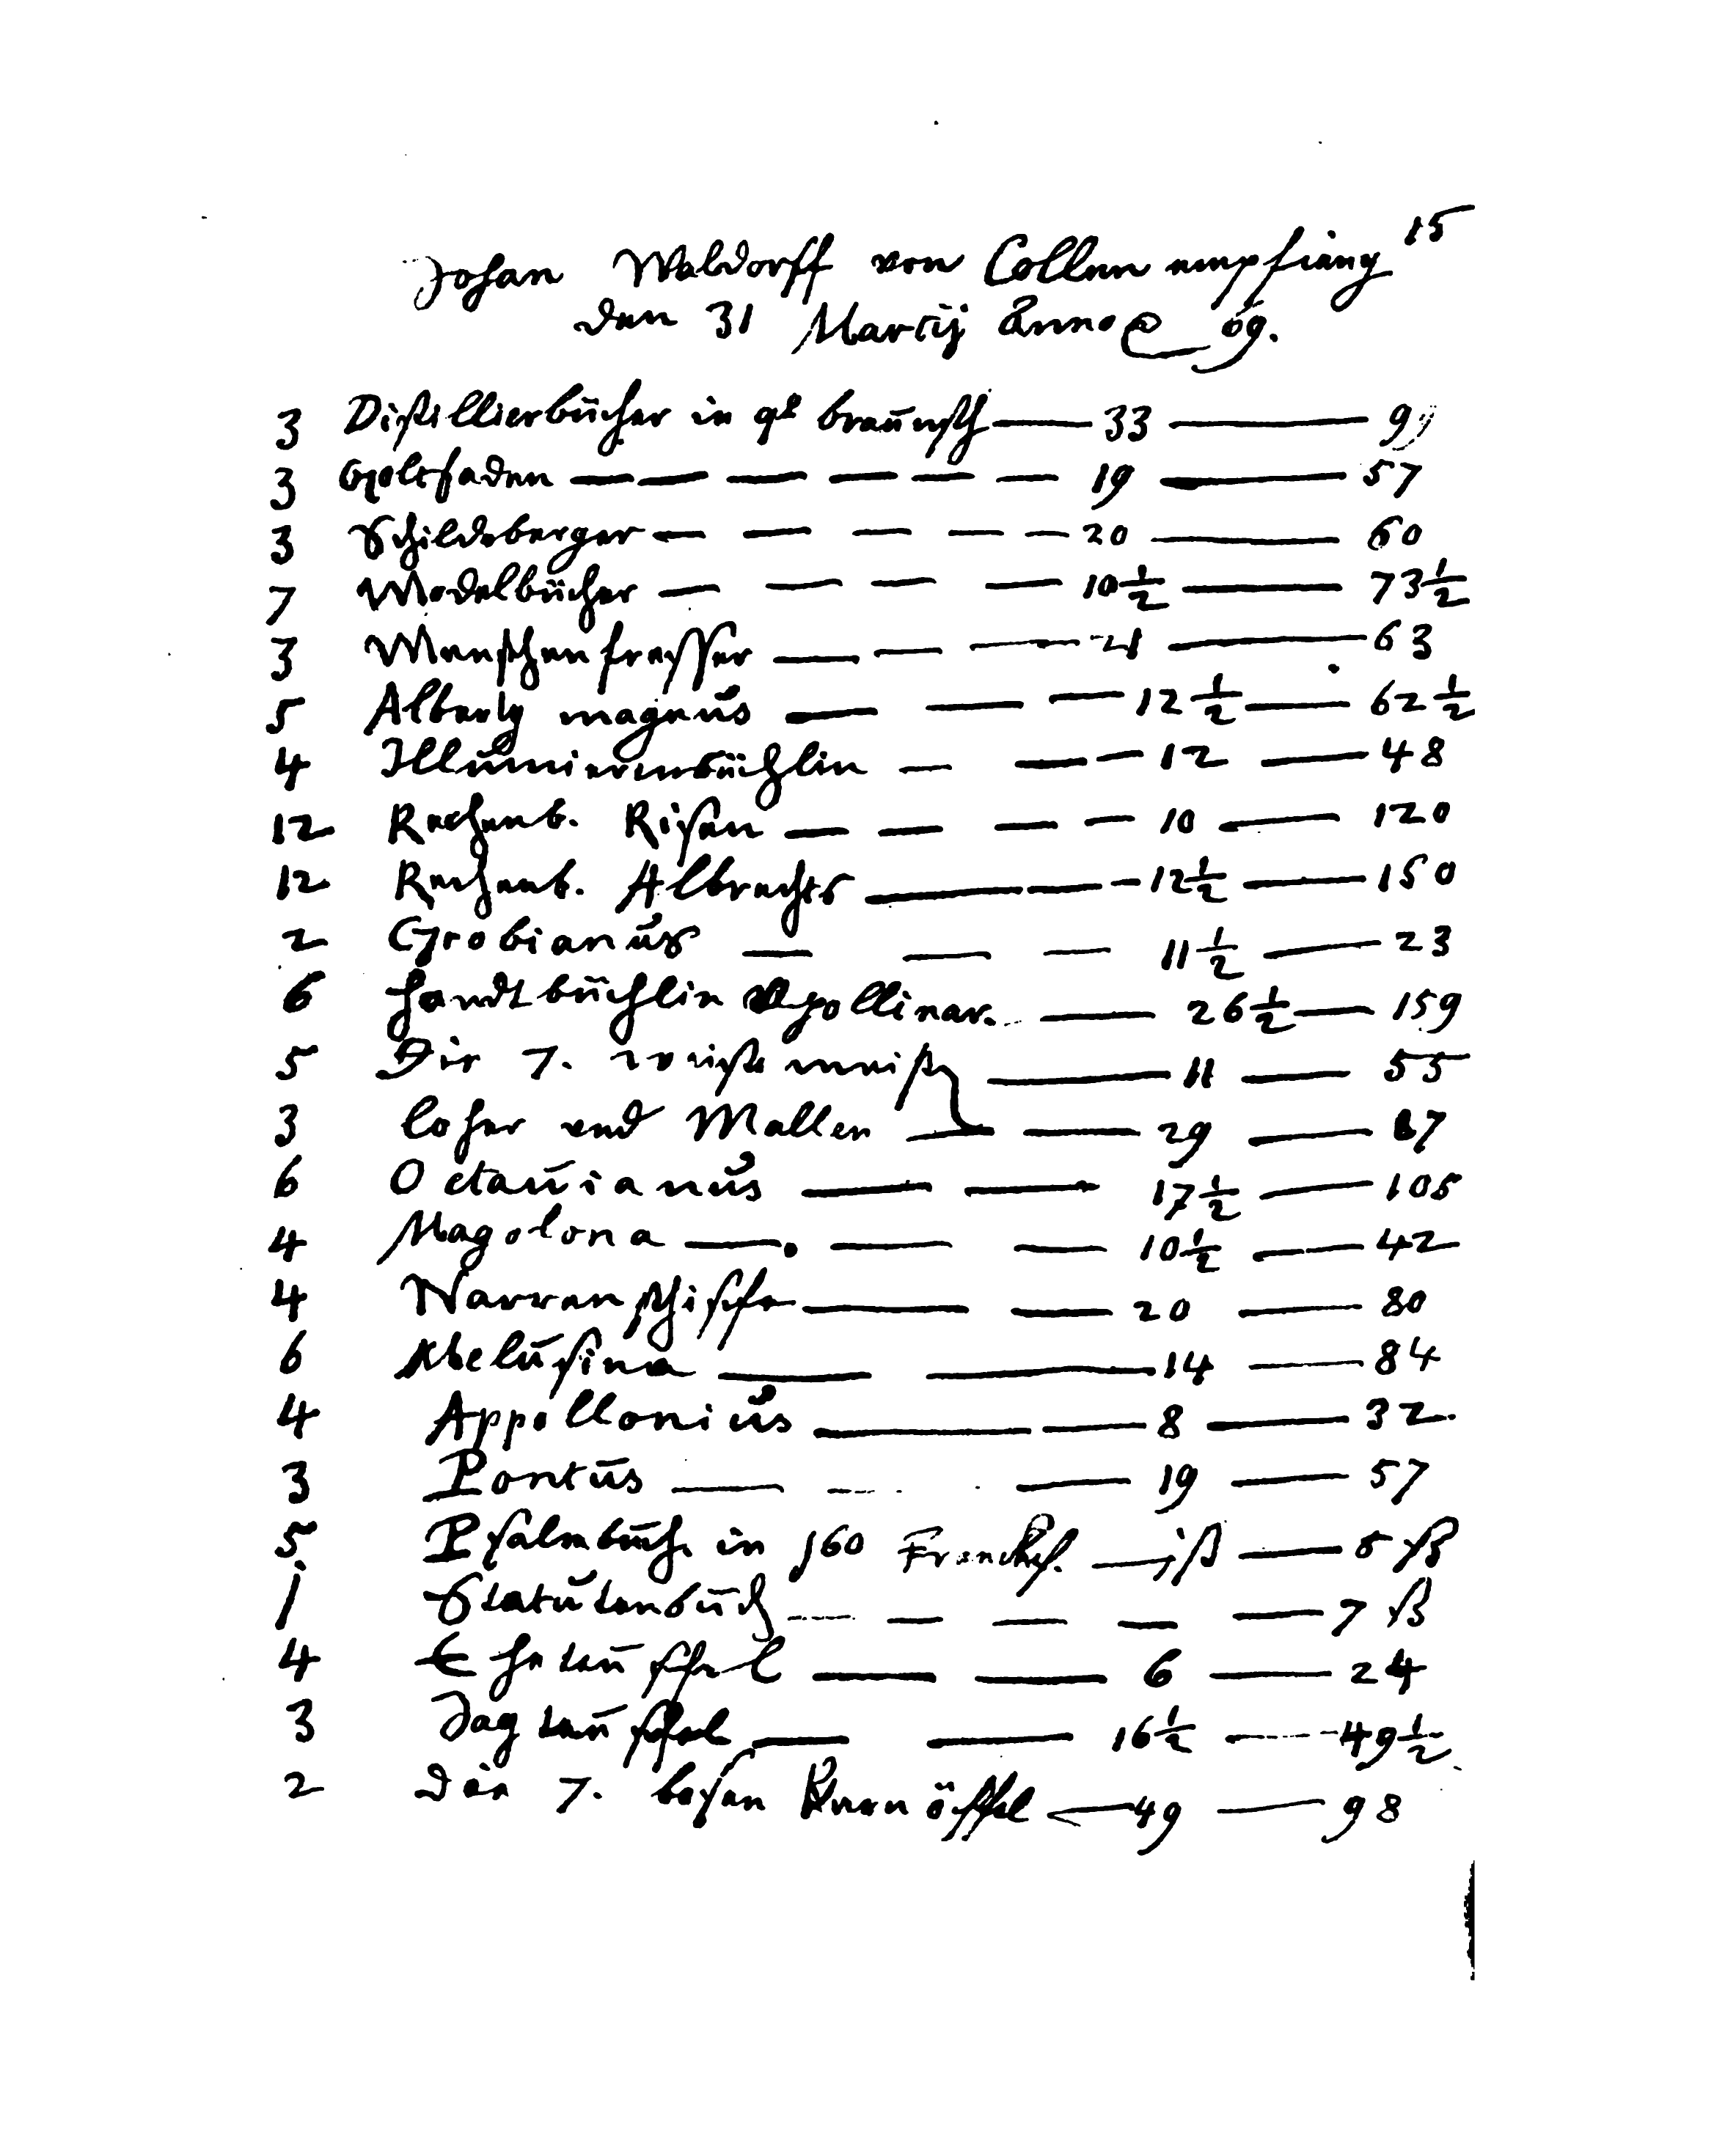 15
Johan Waldorff von Collen empfieng
den 31 Martij Anno 69.
3 Distillierbücher in qt braunsch — 33 — 99
3 Goltfaden — 19 — 57
3 Schildtberger — 20 — 60
7 Modelbücher — 10½ — 73½
3 Menschenfresser — 21 — 63
5 Alberty magnus — 12½ — 62½
4 Illuminierbüchlin — 12 — 48
12 Rechenb. Risen — 10 — 120
12 Rechenb. Albrechts — 12½ — 150
2 Grobianus — 11½ — 23
6 handtbüchlin Apollinar. — 26½ — 159
5 Die 7. weise meister — 11 — 55
3 loher und Maller — 29 — 87
6 Octauianus — 17½ — 105
4 Magolona — 10½ — 42
4 Narren schiffe — 20 — 80
6 Melusina — 14 — 84
4 Appollonius — 8 — 32
3 Pontus — 19 — 57
5 Psalmbuch in j60 Franckf. — iß — 5 ß
j Statutenbuch — 7 ß
4 Eheteuffel — 6 — 24
3 Jagteuffel — 16½ — 49½
2 die 7. bosen — 49 — 98